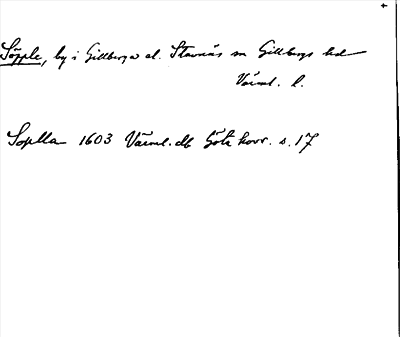 Söpple, by i Gillberga el. Stavnäs sn Gillbergs hd
Värml. l.
Soplla 1603 Värml. db Göta hovr. s. 17